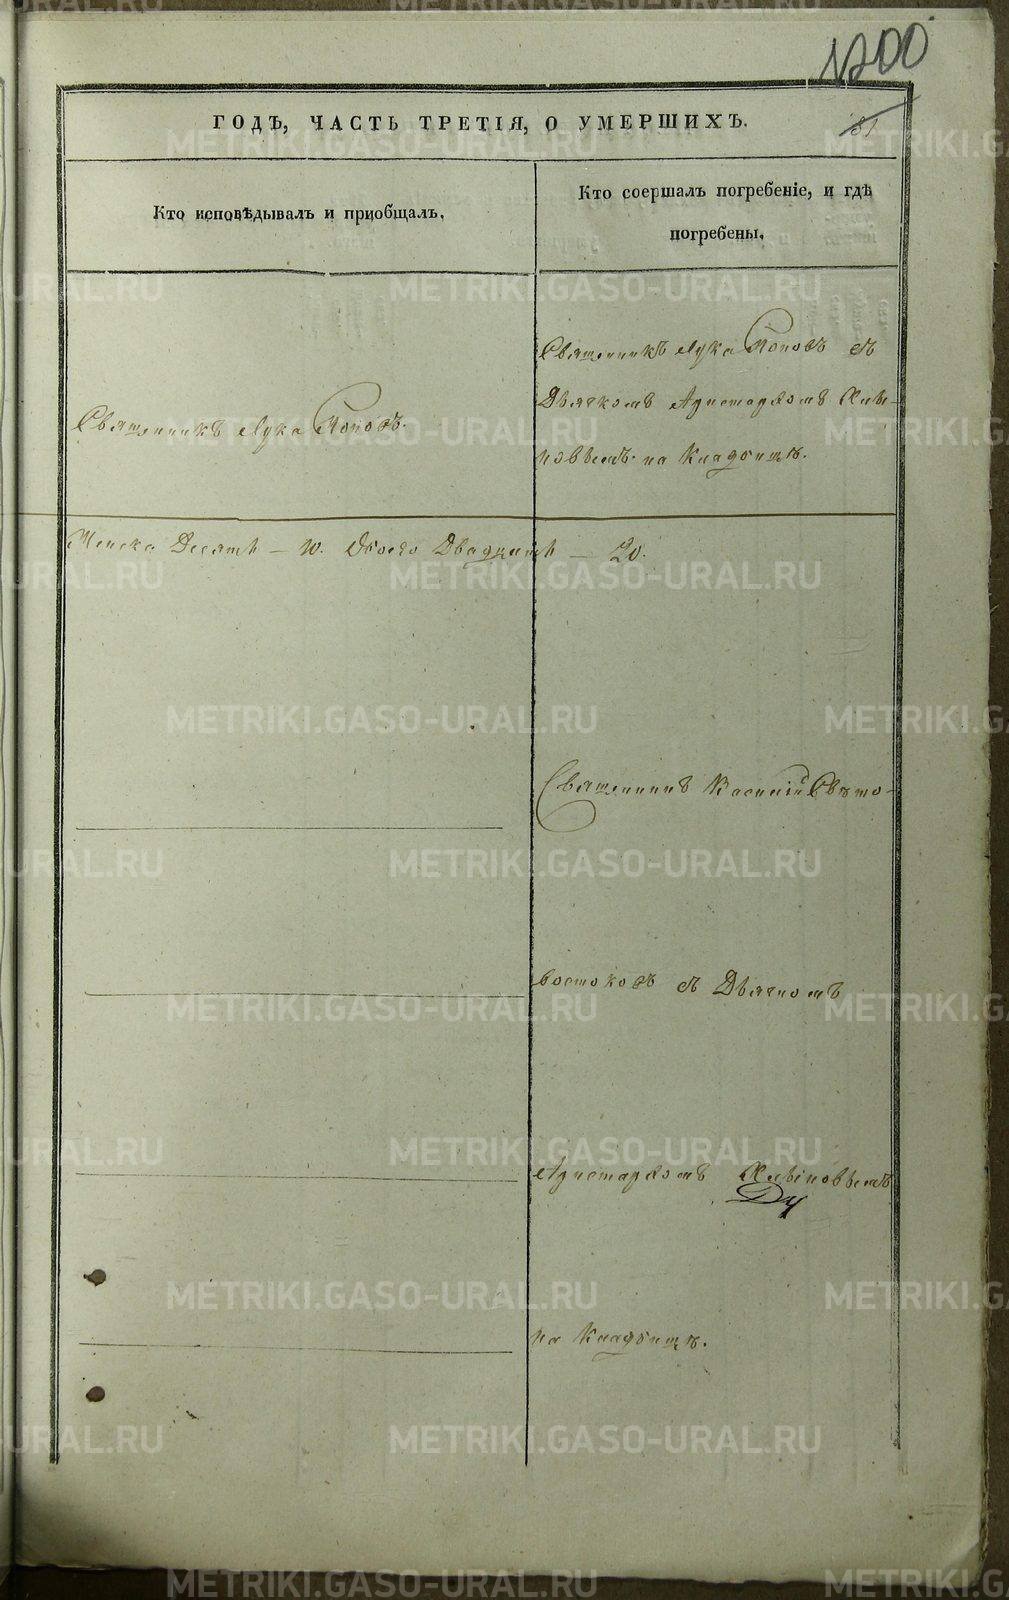 1200
181
ГОДЪ, ЧАСТЬ ТРЕТІЯ, О УМЕРШИХЪ.
Кто исповѣдывалъ и приобщалъ.
Кто соершалъ погребеніе, и гдѣ
погребены.
Священникъ Лука Поповъ.
Священникъ Лука Поповъ съ
Дьячкомъ Аристархомъ
на Кладбищѣ.
Женска Десять — 10. Обоего Двадцать — 20.
Священникъ Василій Свѣто-
востоковъ съ Дьячкомъ
Аристархомъ
на Кладбищѣ.
METRIKI.GASO-URAL.RU